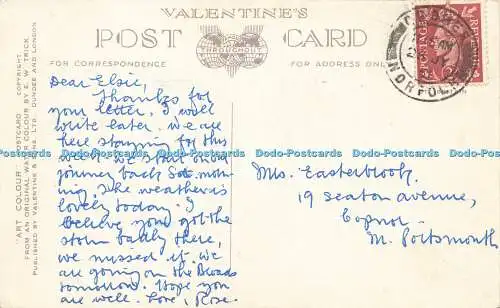 VALENTINE'S
POST CARD
FOR CORRESPONDENCE
FOR ADDRESS ONLY
"ART COLOUR" POSTCARD. COPYRIGHT
FROM AN ORIGINAL WATER COLOUR BY E. W. TRICK.
PUBLISHED BY VALENTINE & SONS, LTD. DUNDEE AND LONDON
POSTAGE
REVENUE
NORFOLK
Dear Elsie,
Thanks for
your letter, I will
write later. We are
here staying for this
week, we start our
journey back Sat. morn-
ing, The weather is
lovely today. I
believe you'd got the
storm badly there,
we missed it. We
are going on the Broads
tomorrow. Hope you
are well. Love, Rose.
Mrs. Easterbrook,
19 Seaton avenue,
Copnor
Nr. Portsmouth
Dodo-Postcards Dodo-Postcards Dodo-Postcards Dodo-Postcards Dodo-Postcards